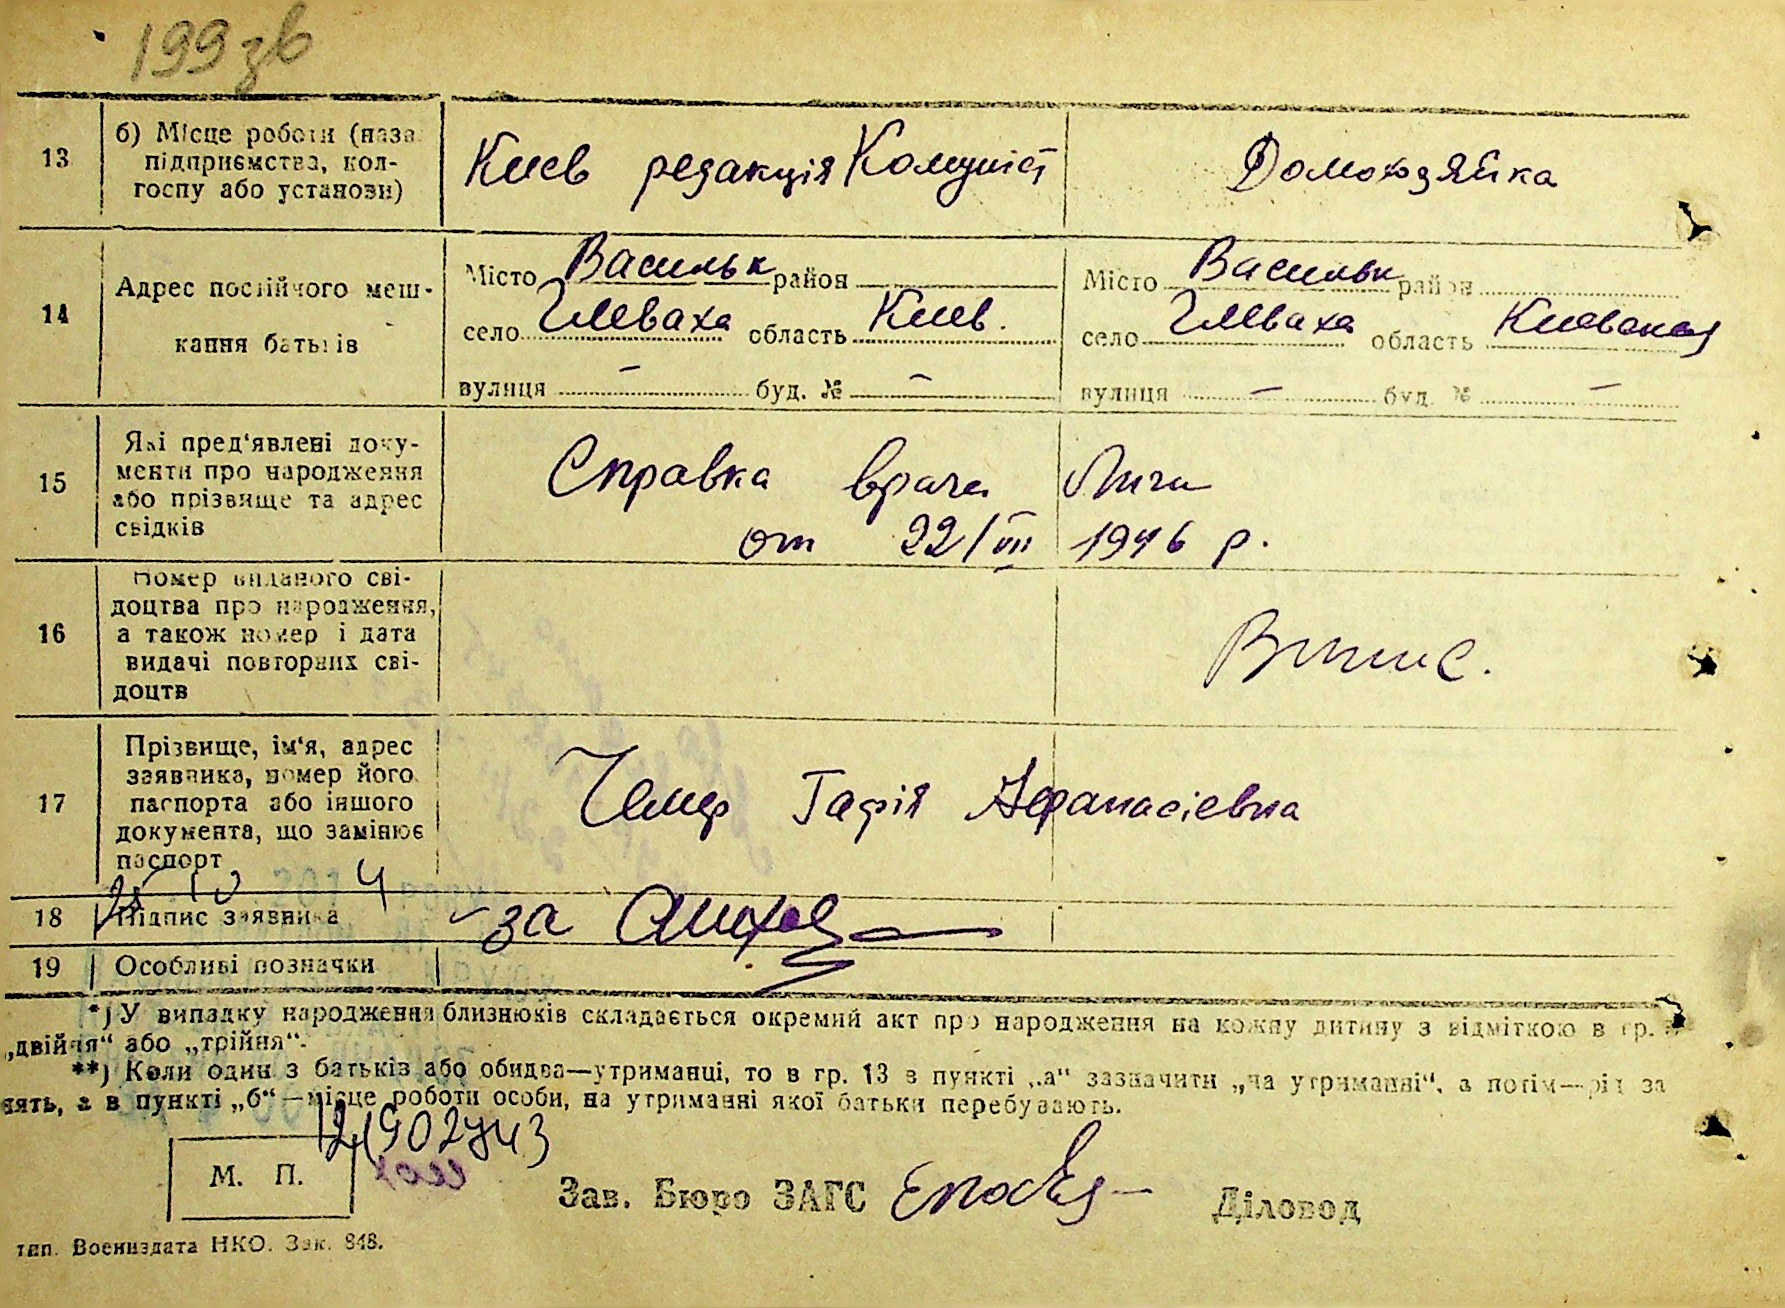 199 зв
13 б) Місце роботи (назва підприємства, колгоспу або установи) Киев редакція Комуніст Домохозяйка
14 Адрес постійного мешкання батьків
Місто Васильк район село Глеваха область Киев. вулиця – буд. № –
Місто Васильк район село Глеваха область Киевская вулиця – буд. № –
15 Які пред'явлені документи про народження або прізвище та адрес свідків
Справка врача
от 22/VII 1946 р.
16 Номер виданого свідоцтва про народження, а також номер і дата видачі повторних свідоцтв
17 Прізвище, ім'я, адрес заявника, номер його паспорта або іншого документа, що замінює паспорт
Гафія Афанасіевна
18 Підпис заявника за
19 Особливі позначки
*) У випадку народження близнюків складається окремий акт про народження на кожну дитину з відміткою в гр.
„двійня“ або „трійня“.
**) Коли один з батьків або обидва—утриманці, то в гр. 13 в пункті „а“ зазначити „на утриманні“, а потім—рід за
нять, а в пункті „б“—місце роботи особи, на утриманні якої батьки перебувають.
М. П.
Зав. Бюро ЗАГС Діловод
тип. Воениздата НКО. Зак. 848.